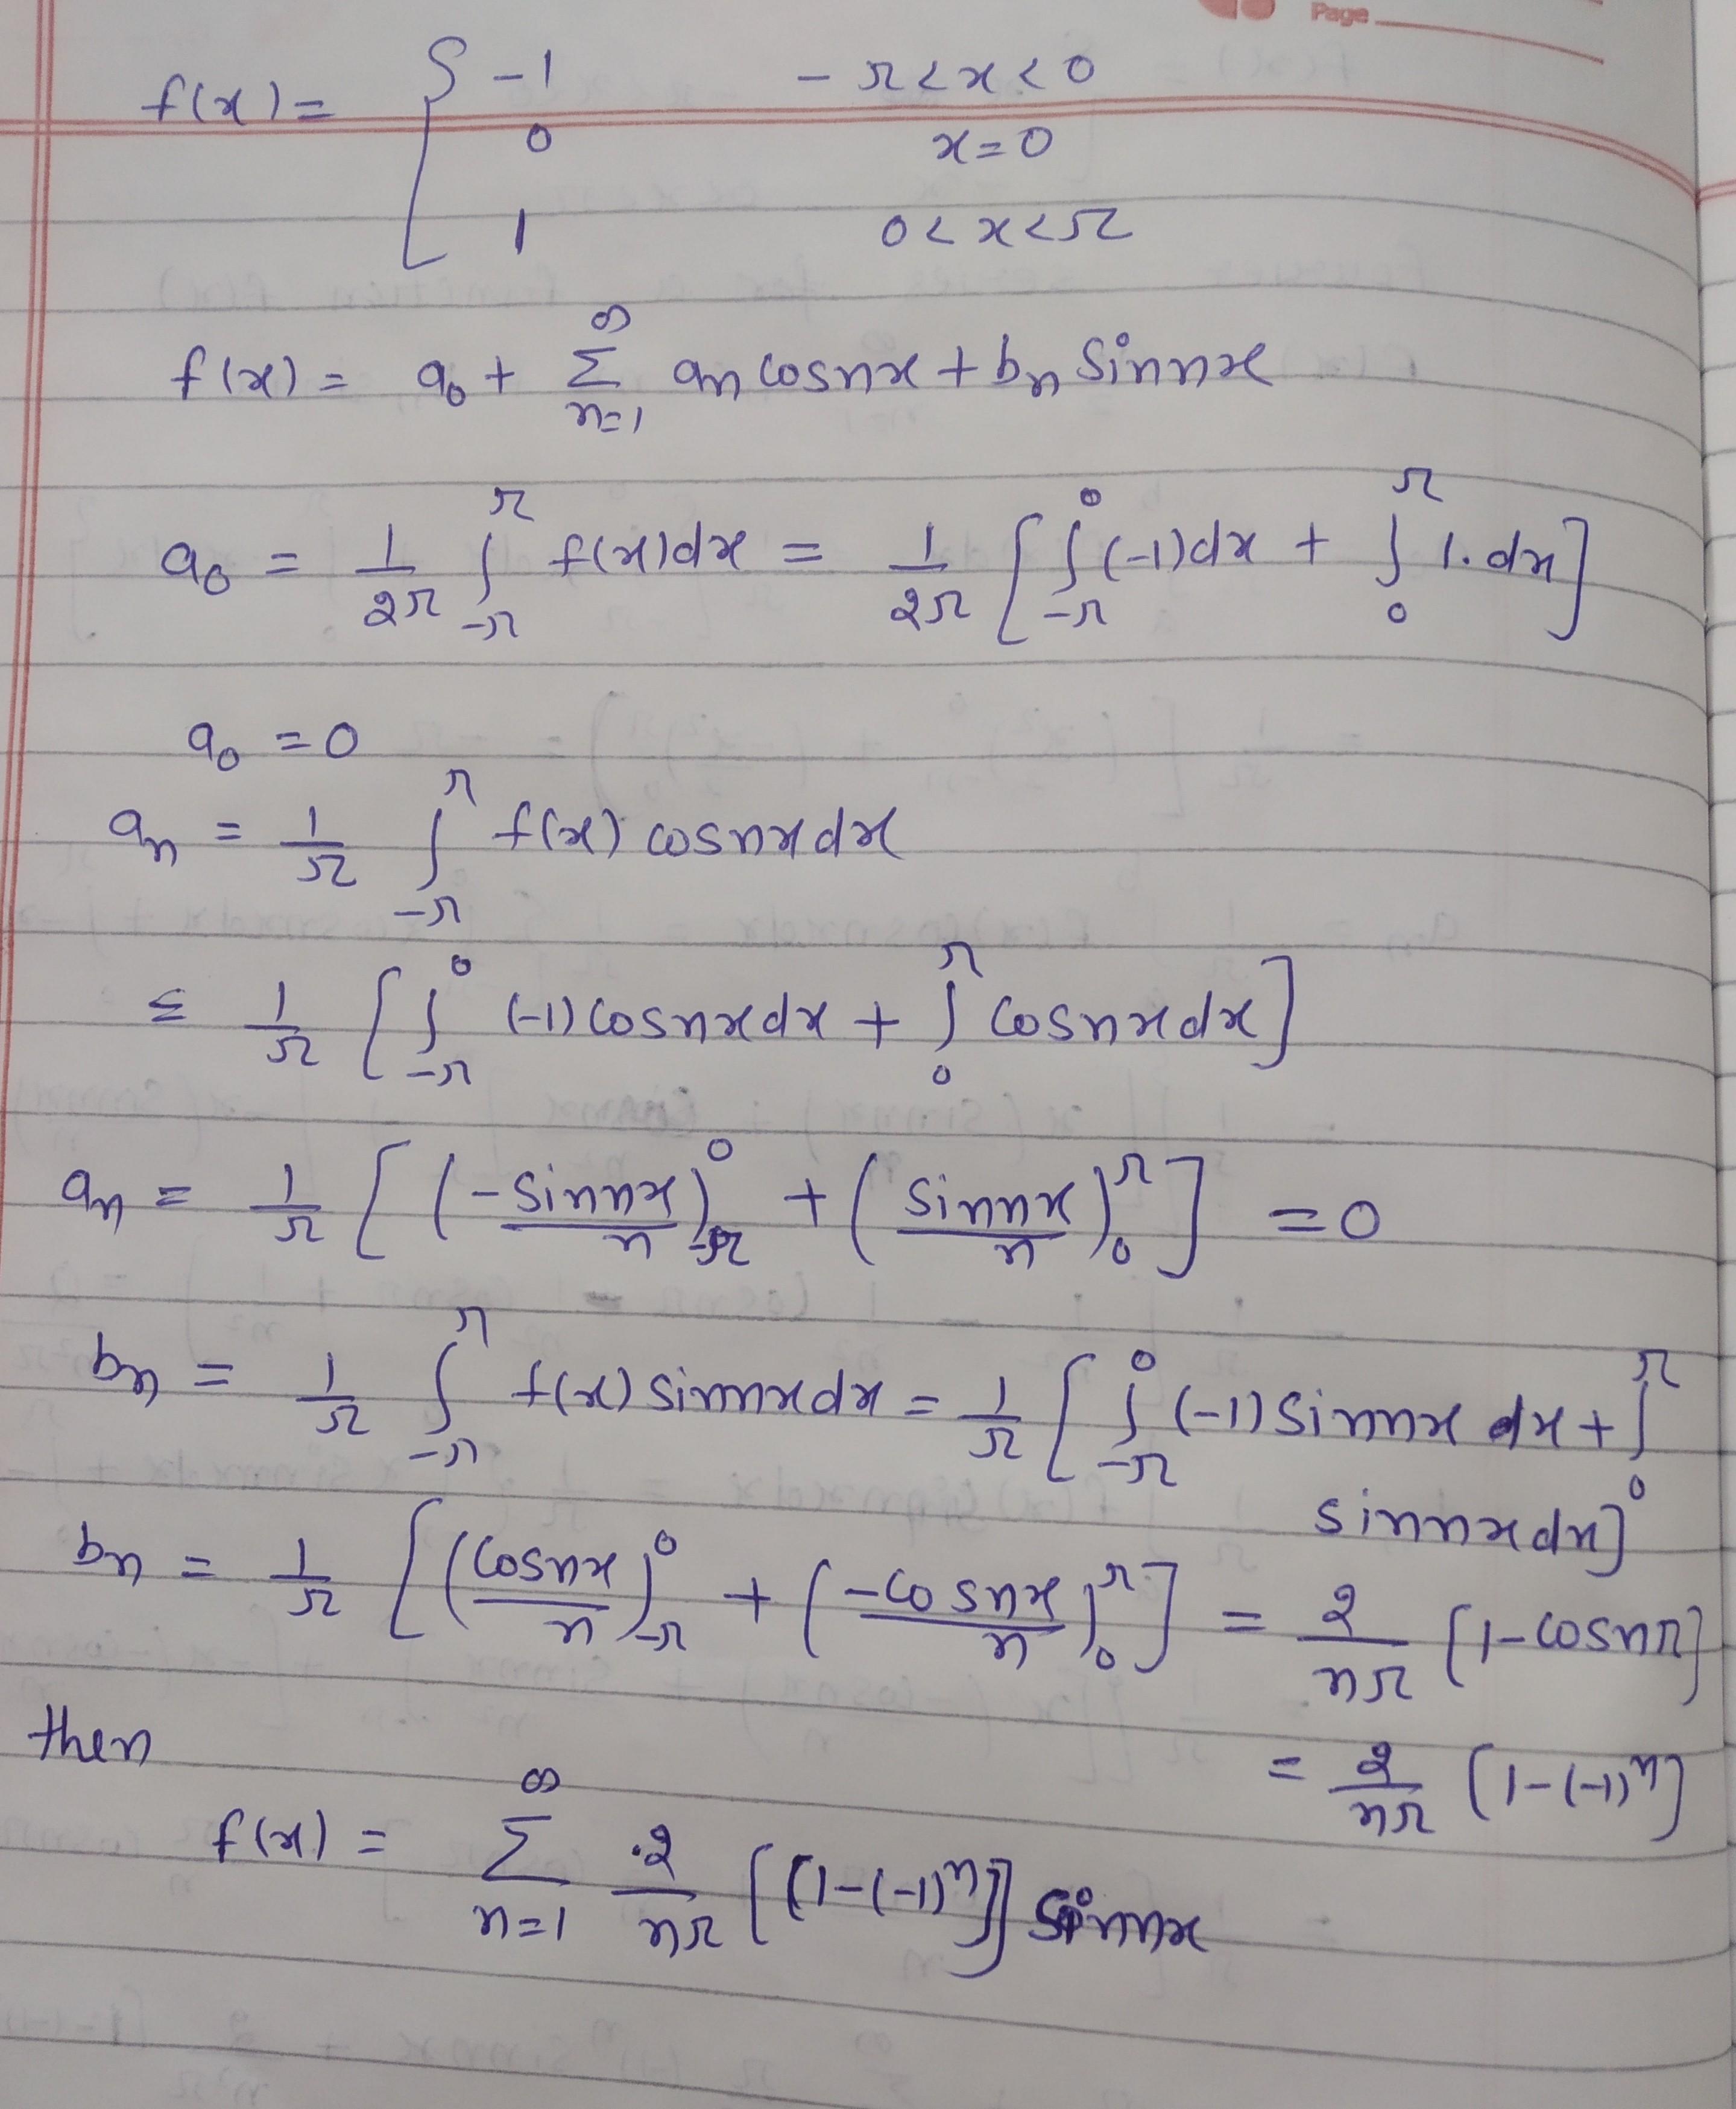 Page
f(x) = { -1    -π<x<0
0    x=0
1    0<x<π
f(x) = a₀ + ∞Σn=1 aₙ cosnx + bₙ sinnx
a₀ = 1/2π ∫_{-π}^{π} f(x)dx = 1/2π [∫_{-π}^{0} (-1)dx + ∫_{0}^{π} 1.dx]
a₀ = 0
aₙ = 1/π ∫_{-π}^{π} f(x) cosnxdx
= 1/π [∫_{-π}^{0} (-1)cosnxdx + ∫_{0}^{π} cosnxdx]
aₙ = 1/π [(-sinnx/n)_{-π}^{0} + (sinnx/n)_{0}^{π}] = 0
bₙ = 1/π ∫_{-π}^{π} f(x)sinnxdx = 1/π [∫_{-π}^{0} (-1)sinnx dx + ∫_{0}^{π}
sinnxdx]
bₙ = 1/π [(cosnx/n)_{-π}^{0} + (-cosnx/n)_{0}^{π}] = 2/nπ [1-cosnπ]
then
= 2/nπ (1-(-1)ⁿ)
f(x) = ∞Σn=1 2/nπ [(1-(-1)ⁿ)] sinnx